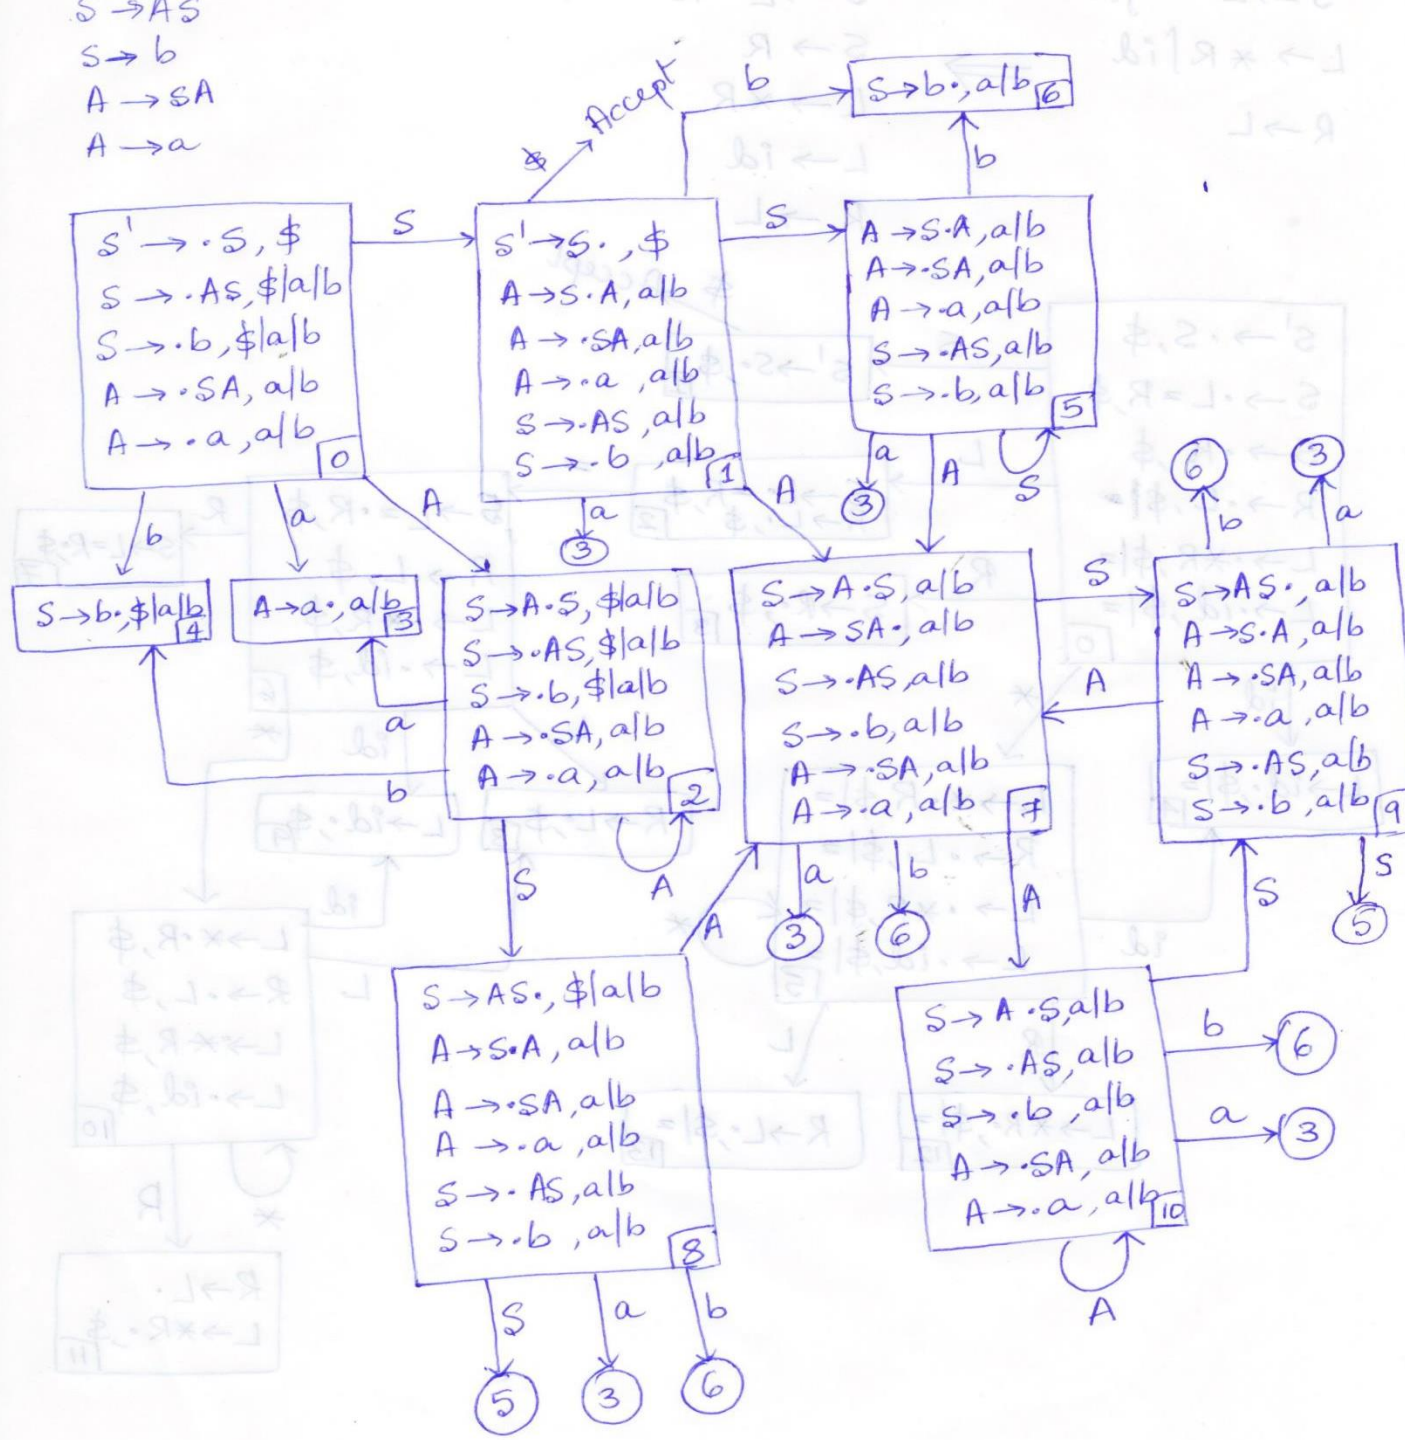 S → AS
S → b
A → SA
A → a
$ Accept
b
S → b•, a|b 6
b
S' → •S, $
S → •AS, $|a|b
S → •b, $|a|b
A → •SA, a|b
A → •a, a|b 0
S
S' → S•, $
A → S•A, a|b
A → •SA, a|b
A → •a, a|b
S → •AS, a|b
S → •b, a|b 1
S
A → S•A, a|b
A → •SA, a|b
A → •a, a|b
S → •AS, a|b
S → •b, a|b 5
b
a
A
a
3
A
a
3
A
S
6
b
3
a
S → b•, $|a|b 4
A → a•, a|b 3
S → A•S, $|a|b
S → •AS, $|a|b
S → •b, $|a|b
A → •SA, a|b
A → •a, a|b 2
a
b
S
A
S → A•S, a|b
A → SA•, a|b
S → •AS, a|b
S → •b, a|b
A → •SA, a|b
A → •a, a|b 7
S
A
S → AS•, a|b
A → S•A, a|b
A → •SA, a|b
A → •a, a|b
S → •AS, a|b
S → •b, a|b 9
A
a
3
b
6
A
S
S
5
S → AS•, $|a|b
A → S•A, a|b
A → •SA, a|b
A → •a, a|b
S → •AS, a|b
S → •b, a|b 8
S → A•S, a|b
S → •AS, a|b
S → •b, a|b
A → •SA, a|b
A → •a, a|b 10
b
6
a
3
A
S
5
a
3
b
6